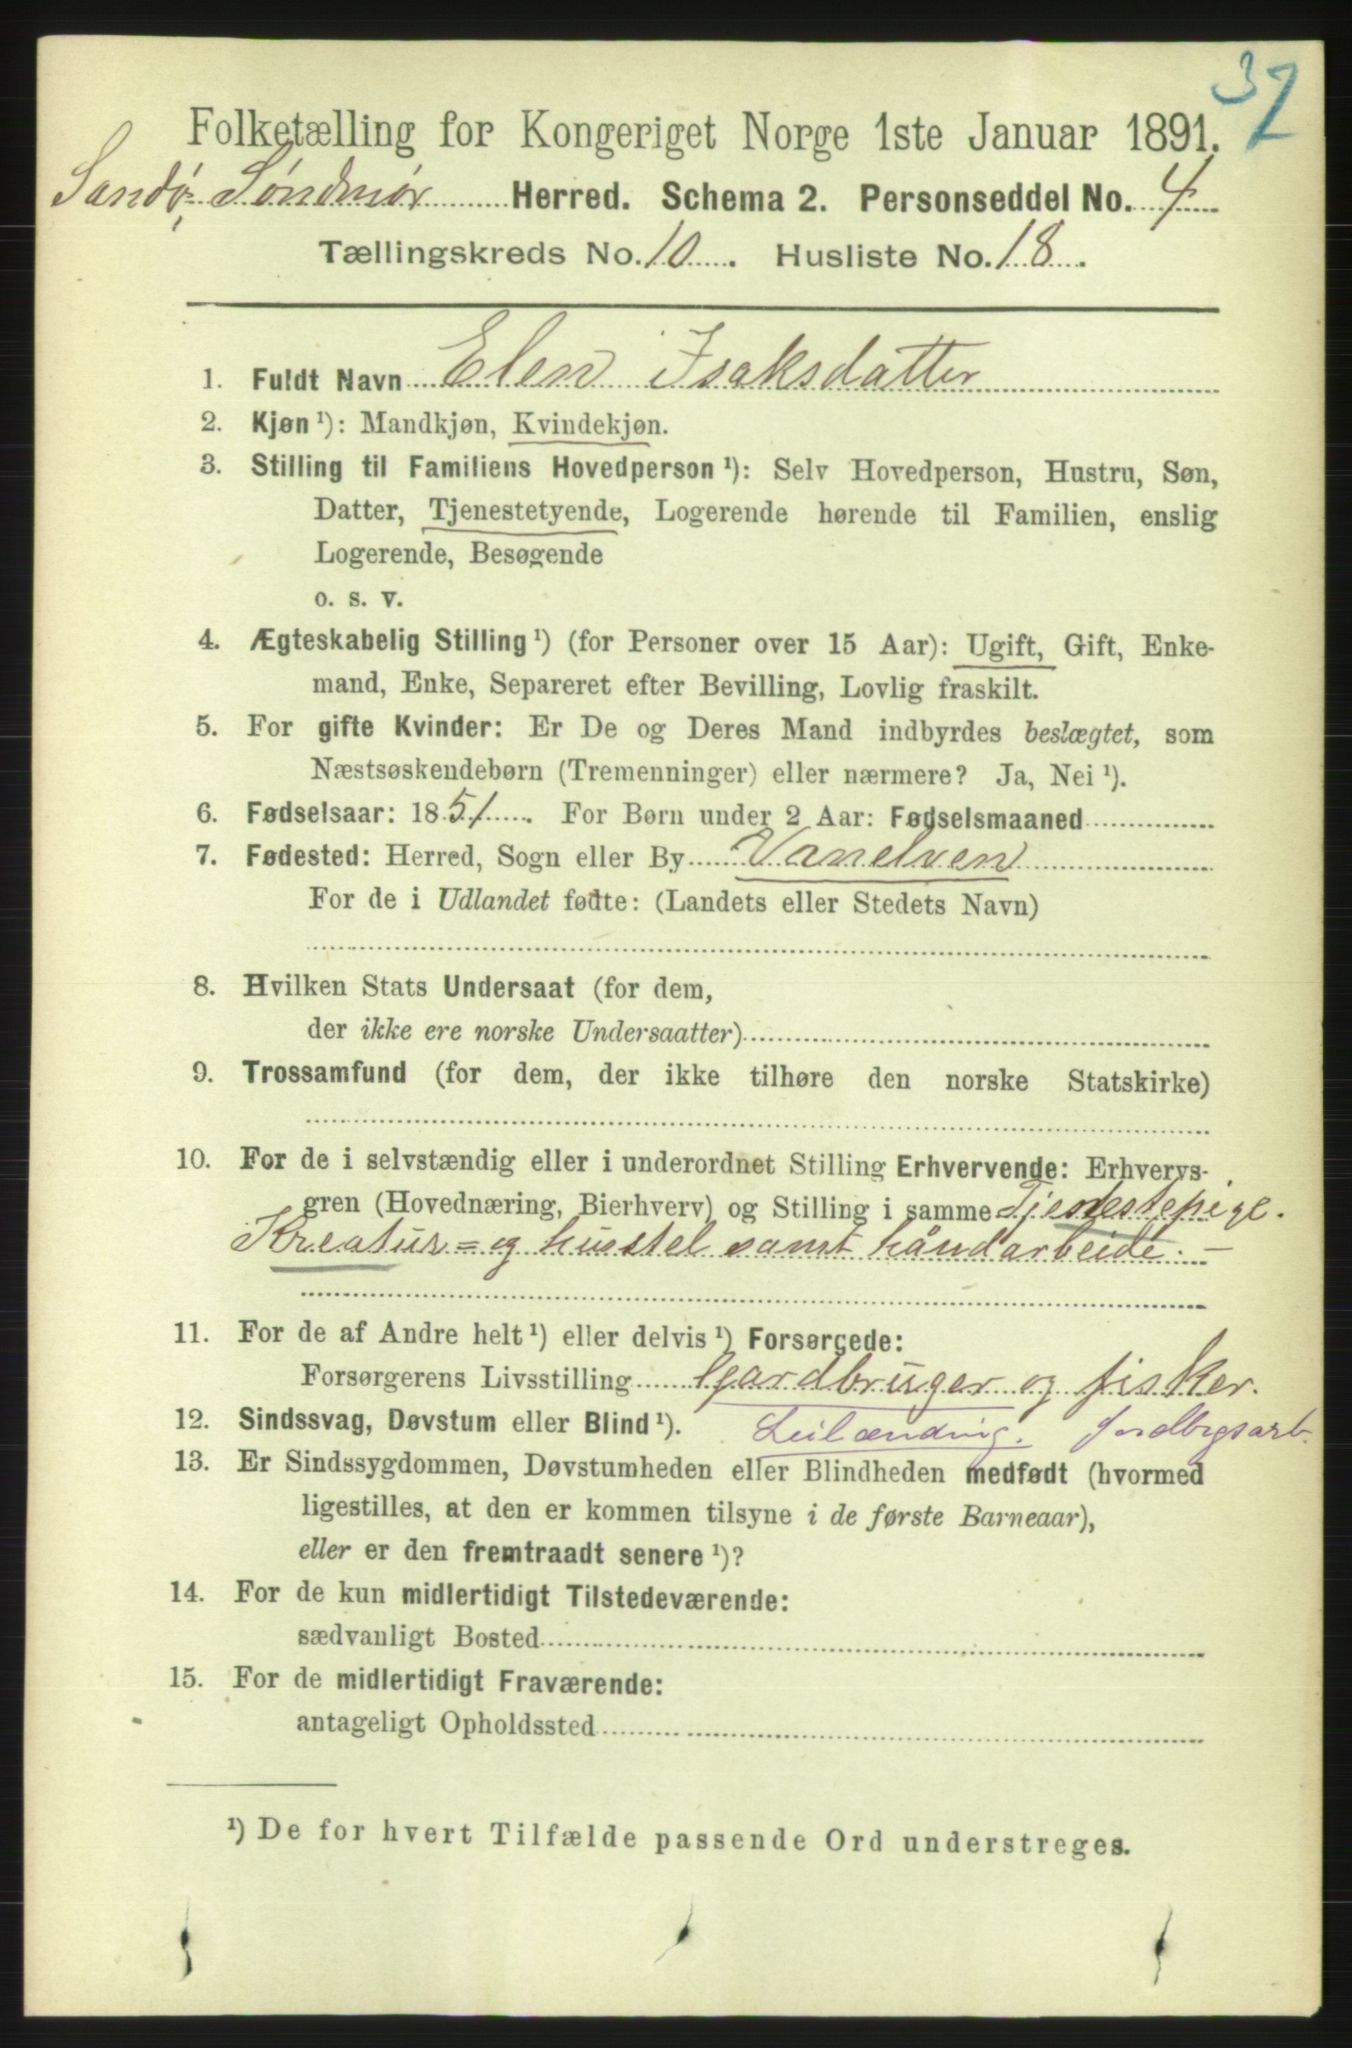 37
Folketælling for Kongeriget Norge 1ste Januar 1891.
Sandø, Søndmør Herred. Schema 2. Personseddel No. 4
Tællingskreds No. 10. Husliste No. 18.
1. Fuldt Navn Elen Isaksdatter
2. Kjøn ¹): Mandkjøn, Kvindekjøn.
3. Stilling til Familiens Hovedperson ¹): Selv Hovedperson, Hustru, Søn,
Datter, Tjenestetyende, Logerende hørende til Familien, enslig
Logerende, Besøgende
o. s. v.
4. Ægteskabelig Stilling ¹) (for Personer over 15 Aar): Ugift, Gift, Enke-
mand, Enke, Separeret efter Bevilling, Lovlig fraskilt.
5. For gifte Kvinder: Er De og Deres Mand indbyrdes beslægtet, som
Næstsøskendebørn (Tremenninger) eller nærmere? Ja, Nei ¹).
6. Fødselsaar: 1851. For Børn under 2 Aar: Fødselsmaaned
7. Fødested: Herred, Sogn eller By Vanelven
For de i Udlandet fødte: (Landets eller Stedets Navn)
8. Hvilken Stats Undersaat (for dem,
der ikke ere norske Undersaatter)
9. Trossamfund (for dem, der ikke tilhøre den norske Statskirke)
10. For de i selvstændig eller i underordnet Stilling Erhvervende: Erhvervs-
gren (Hovednæring, Bierhverv) og Stilling i samme Tjenestepige.
Kreatur= og husstel samt håndarbeide. —
11. For de af Andre helt ¹) eller delvis ¹) Forsørgede:
Forsørgerens Livsstilling Gardbruger og fisker.
12. Sindssvag, Døvstum eller Blind ¹). Leilænding. Jordbrgsarb.
13. Er Sindssygdommen, Døvstumheden eller Blindheden medfødt (hvormed
ligestilles, at den er kommen tilsyne i de første Barneaar),
eller er den fremtraadt senere ¹)?
14. For de kun midlertidigt Tilstedeværende:
sædvanligt Bosted
15. For de midlertidigt Fraværende:
antageligt Opholdssted
¹) De for hvert Tilfælde passende Ord understreges.